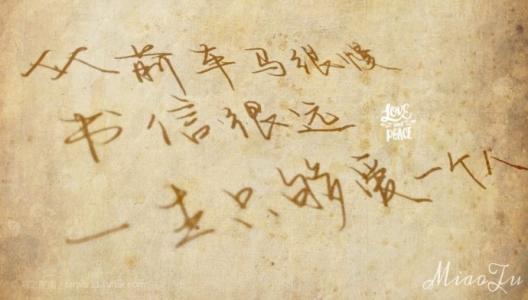 从前车马很慢
书信很远
LOVE
AND
PEACE
一生只够爱一个人
MiaoTu